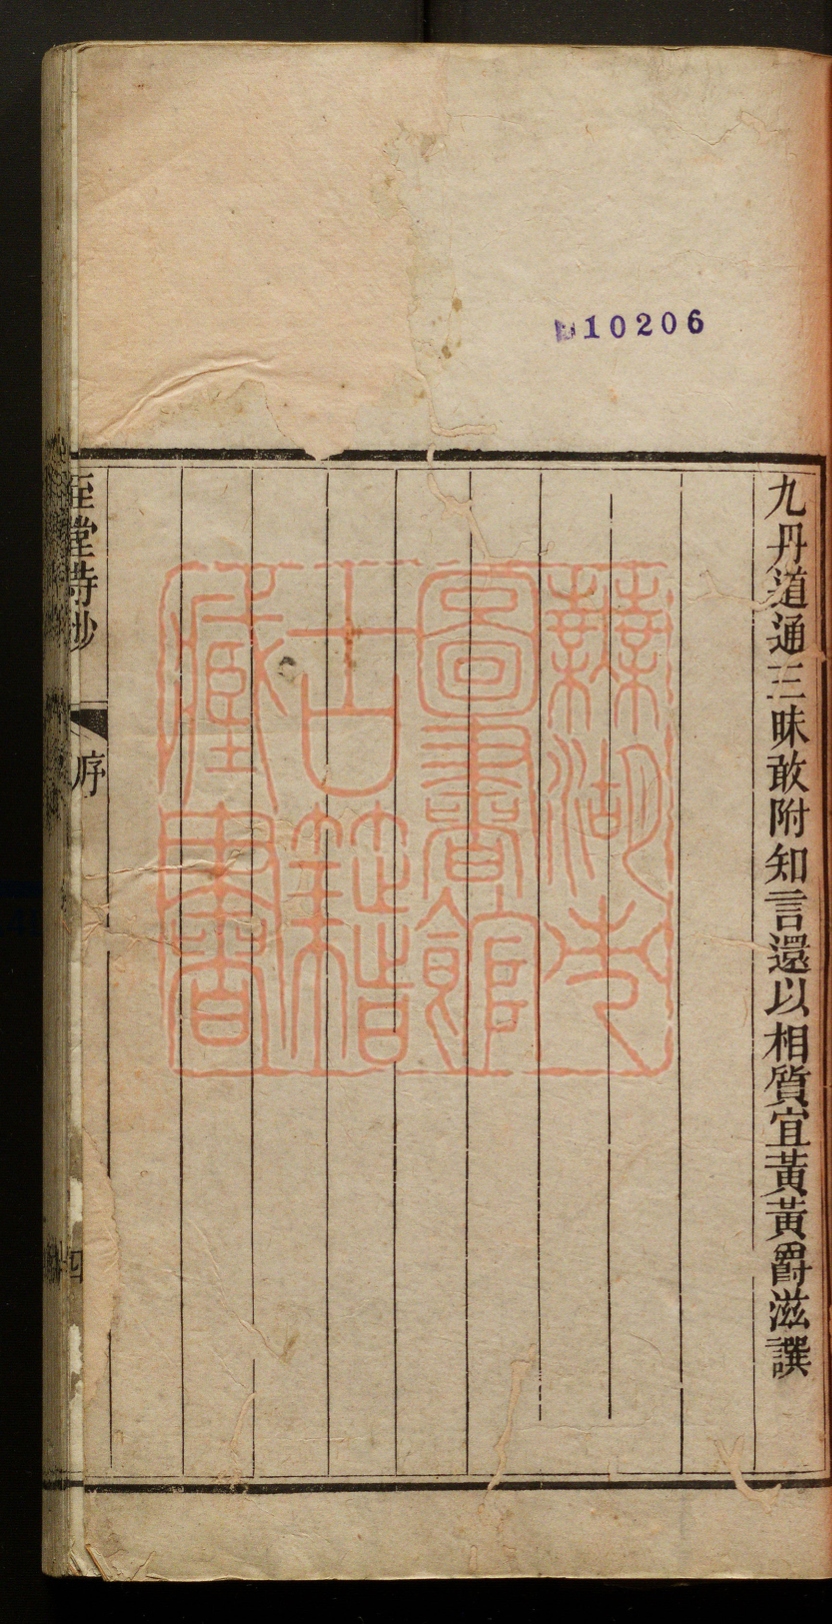 10206
九丹道通三昧敢附知言還以相質宜黃黃爵滋譔
蕪湖市
圖書館
古籍
藏書
堂詩鈔
序
四